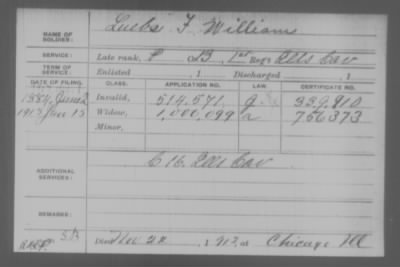 NAME OF SOLDIER: Luebs F. William
SERVICE: Late rank, P Co B, 1st Reg't Ills Cav
TERM OF SERVICE: Enlisted , 1 Discharged , 1
DATE OF FILING. CLASS. APPLICATION NO. LAW. CERTIFICATE NO.
1884, June 2 Invalid, 514,571 339,910
1913 Jan 15 Widow, 1,000,099 756373
Minor,
ADDITIONAL SERVICES: C 16. Ills Cav
REMARKS:
Died Nov , 1912, at Chicago Ill